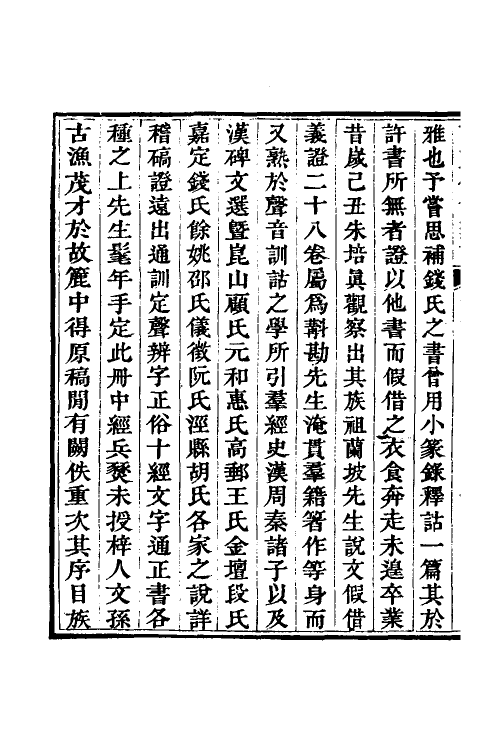 雅也予嘗思補錢氏之書曾用小篆錄釋詁一篇其於
許書所無者證以他書而假借之衣食奔走未遑卒業
昔歲己丑朱培眞觀察出其族祖蘭坡先生說文假借
義證二十八卷屬爲斠勘先生淹貫羣籍箸作等身而
又熟於聲音訓詁之學所引羣經史漢周秦諸子以及
漢碑文選暨崑山顧氏元和惠氏高郵王氏金壇段氏
嘉定錢氏餘姚邵氏儀徵阮氏涇縣胡氏各家之說詳
稽碻證遠出通訓定聲辨字正俗十經文字通正書各
種之上先生髦年手定此册中經兵燹未授梓人文孫
古漁茂才於故簏中得原稿閒有闕佚重次其序目族